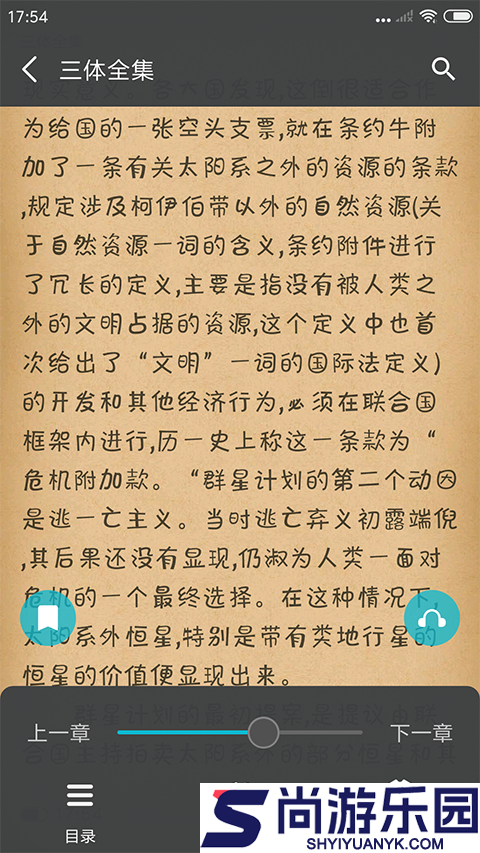 17:54
三体全集
大国发现,这個很适合作
为给国的一张空头支票,就在条约牛附
加了一条有关太阳系之外的资源的条款
,规定涉及柯伊伯带以外的自然资源(关
于自然资源一词的含义,条约附件进行
了冗长的定义,主要是指没有被人类之
外的文明占据的资源,这个定义中也首
次给出了“文明”一词的国际法定义)
的开发和其他经济行为,必须在联合国
框架内进行,历一史上称这一条款为“
危机附加款。“群星计划的第二个动因
是逃一亡主义。当时逃亡弃义初露端倪
,其后果还没有显现,仍淑为人类一面对
危机的一个最终选择。在这种情况下,
太阳系外恒星,特别是带有类地行星的
恒星的价值便显现出来。
群星计划的最初提案,是提议由联
合国主持拍卖太阳系外的部分恒星和其
上一章
下一章
目录
尚游乐园
SHYIYUANYK.COM